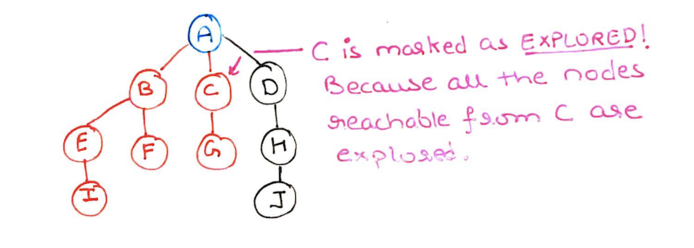 A
C is marked as EXPLORED!
B
C
D
Because all the nodes
reachable from C are
E
F
G
H
explored.
I
J